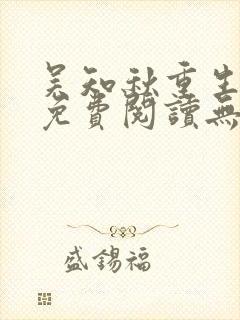 吴知秋重生
免費閱讀無
盛錫福